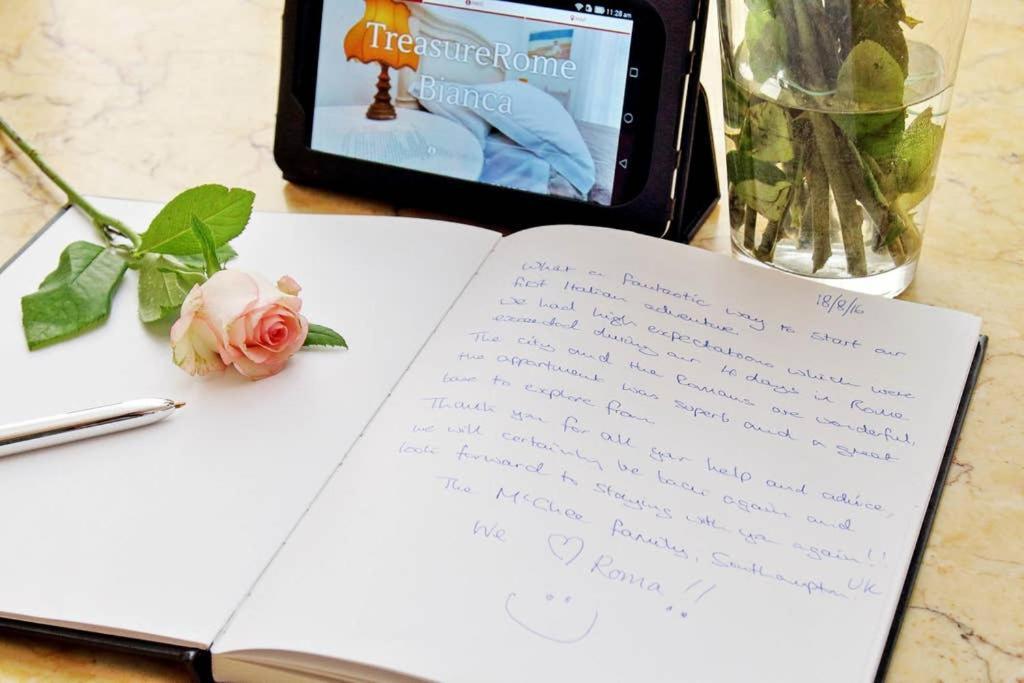 11:28 am
TreasureRome
Bianca
18/8/16
What a fantastic way to start our
first Italian adventure.
We had high expectations which were
exceeded during our 4 days in Rome
The city and the Romans are wonderful,
the appartment was superb and a great
base to explore from
Thank you for all your help and advice,
we will certainly be back again and
look forward to staying with you again!!
The McGhee family, Southampton UK
We ♡ Roma!!